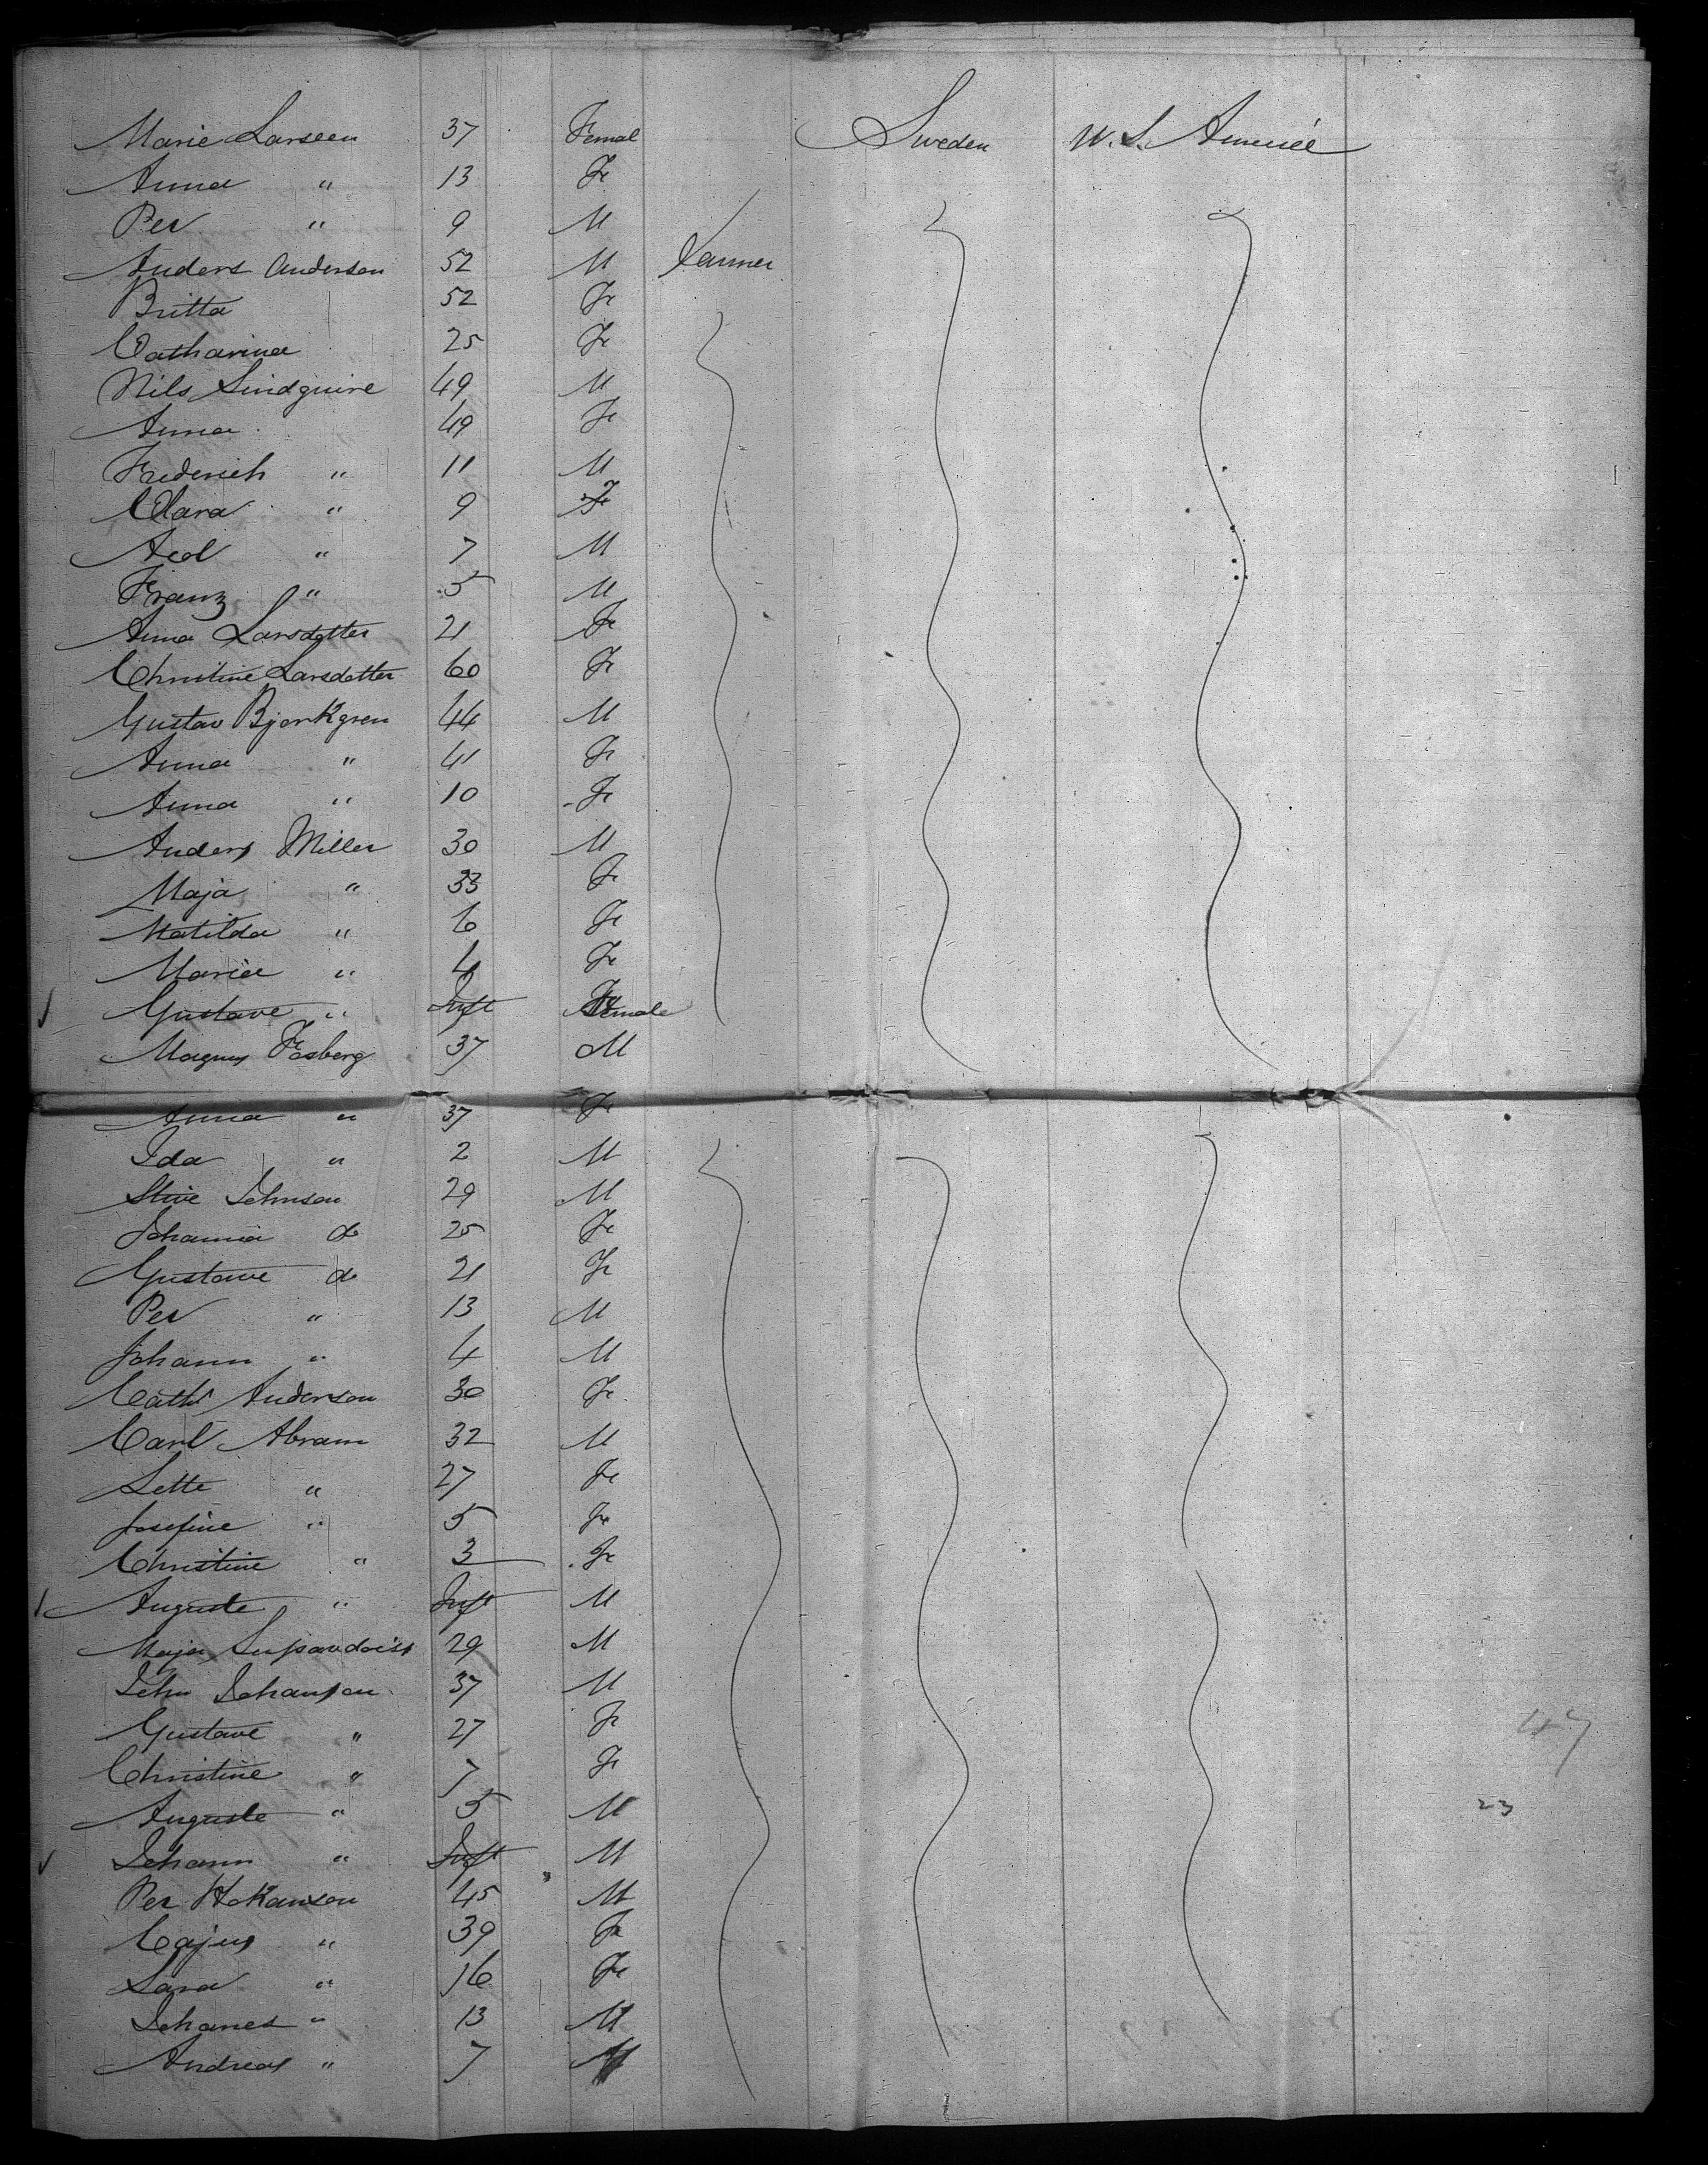 Marie Larseen 37 Femal Sweden U. S. Americe
Anna " 13 Fe
Per " 9 M
Anders Anderson 52 M Farmer
Britta 52 Fe
Catharina 25 Fe
Nils Lindguire 49 M
Anna 49 Fe
Frederich " 11 M
Clara " 9 Fe
Axel " 7 M
Franz " 5 M
Anna Larsdotter 21 Fe
Christine Larsdotter 60 Fe
Gustav Bjorkgren 44 M
Anna " 41 Fe
Anna " 10 Fe
Anders Miller 30 M
Maja " 33 Fe
Matilda " 6 Fe
Maria " 4 Fe
Gustave " Inft Female
Magnus Fosberg 37 M
Anna " 37 Fe
Ida " 2 M
Johnson 29 M
Johanna do 25 Fe
Gustave do 21 Fe
Per " 13 M
Johann " 4 M
Cath Anderson 30 Fe
Carl Abram 32 M
Lette " 27 Fe
Josefine " 5 Fe
Christine " 3 Fe
Auguste " Inft M
Maja 29 M
John Johanson 37 M
Gustave " 27 Fe
Christine " 7 Fe
Auguste " 5 M
Johann " Inft M
Per Hokanson 45 M
Cajus " 39 Fe
Sara " 16 Fe
Johanes " 13 M
Andreas " 7 M
47
23